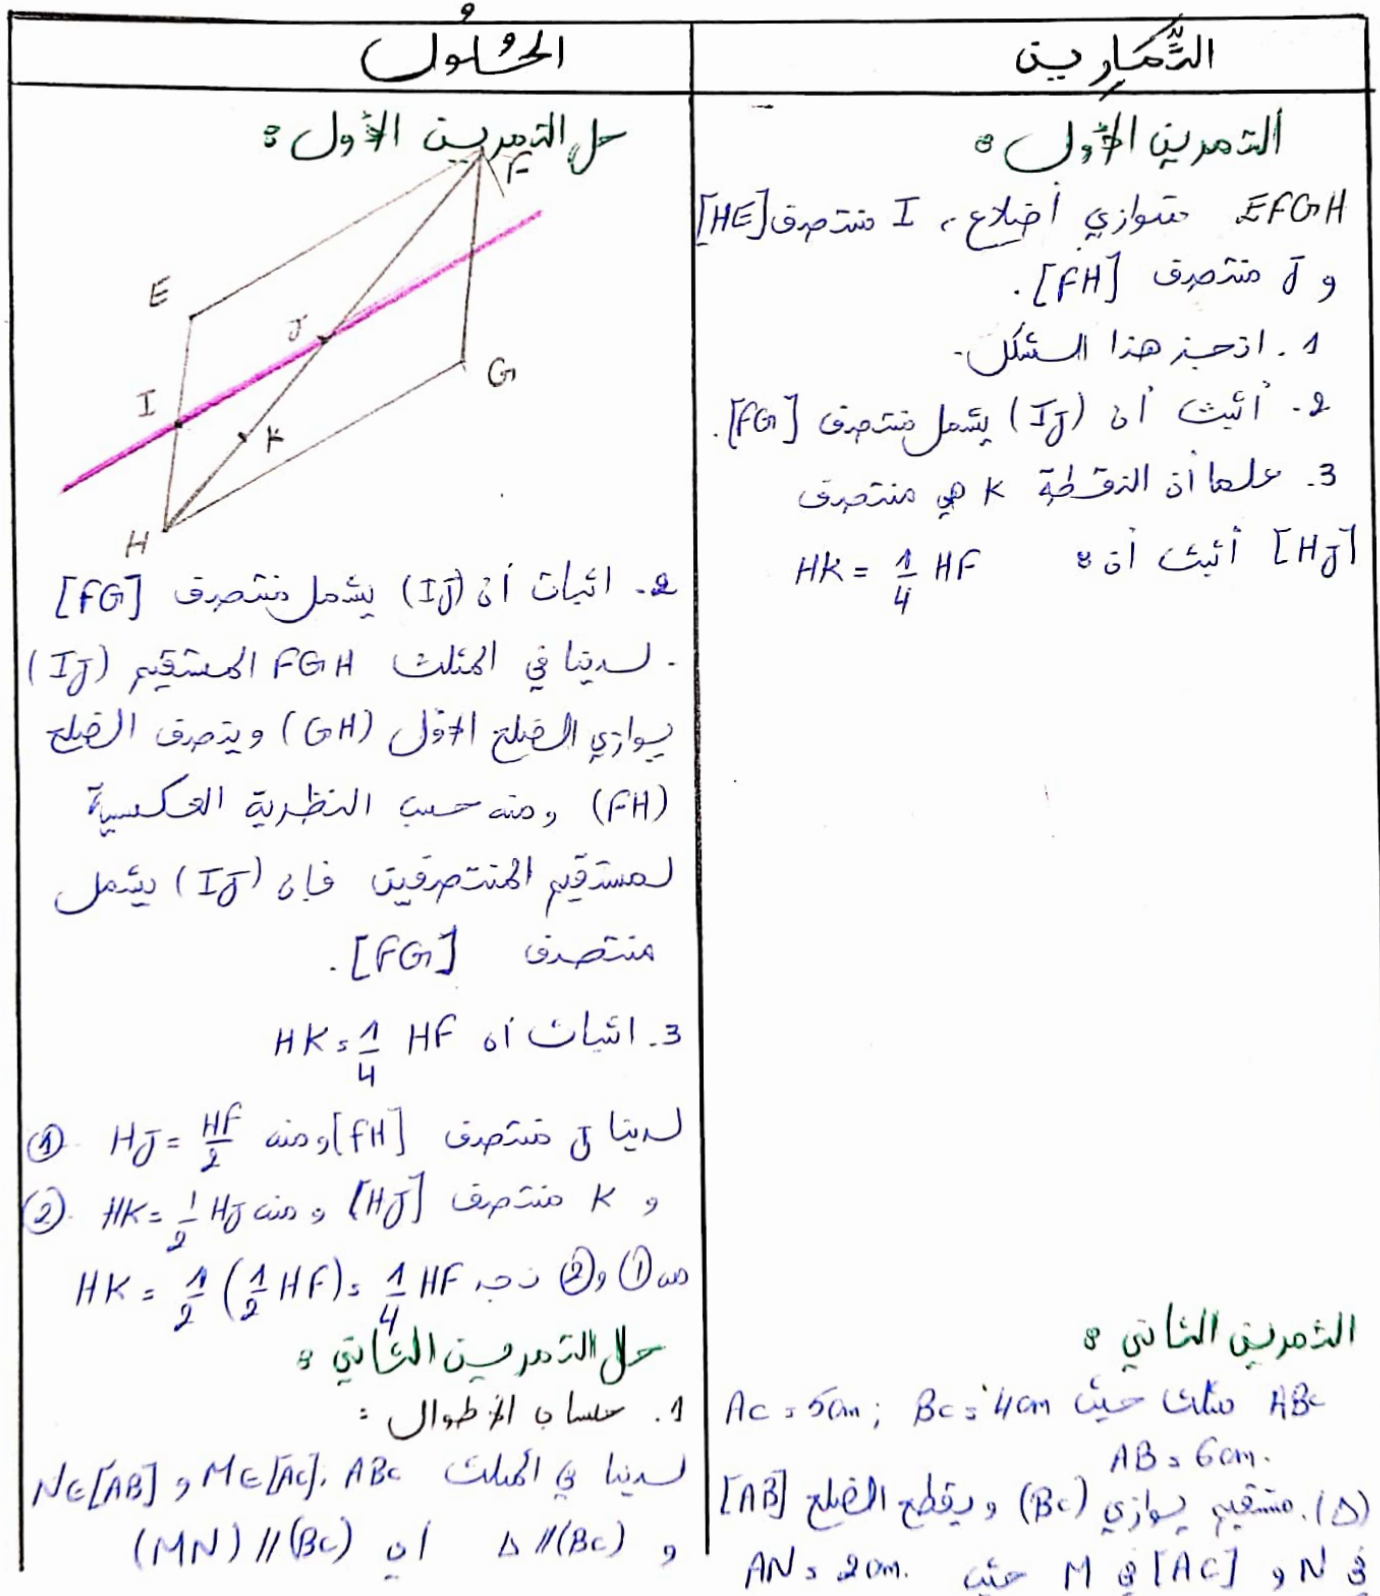 التَّمارين
الحُلول
التمرين الأول :
EFGH متوازي أضلاع، I منتصف [HE]
و J منتصف [FH].
1. انجز هذا الشكل.
2. أثبت أن (IJ) يشمل منتصف [FG].
3. علما أن النقطة K هي منتصف
[HJ] أثبت أن : HK = 1/4 HF
التمرين الثاني :
ABC مثلث حيث AC = 5cm ; BC = 4cm
AB = 6cm.
(Δ). مستقيم يوازي (BC) ويقطع الضلع [AB]
في N و [AC] في M حيث AN = 2cm.
حل التمرين الأول :
F
E
J
G
I
K
H
2. اثبات أن (IJ) يشمل منتصف [FG]
. لدينا في المثلث FGH المستقيم (IJ)
يوازي الضلع الأول (GH) وينصف الضلع
(FH) ومنه حسب النظرية العكسية
لمستقيم المنتصفين فإن (IJ) يشمل
منتصف [FG].
3. اثبات أن HK = 1/4 HF
لدينا J منتصف [FH] ومنه HJ = HF/2 ①
و K منتصف [HJ] ومنه HK = 1/2 HJ ②
من ① و ② نجد HK = 1/2 (1/2 HF) = 1/4 HF
حل التمرين الثاني :
1. حساب الأطوال :
لدينا في المثلث ABC. M∈[AC] و N∈[AB]
و Δ//(BC) أي (MN)//(BC)